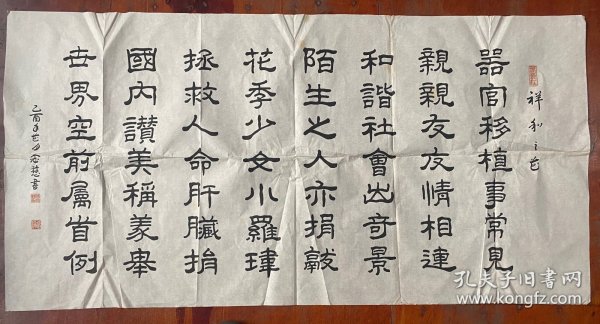 祥和之花
器官移植事常見
親親友友情相連
和諧社會出奇景
陌生之人亦捐獻
花季少女小羅瑋
拯救人命肝臟捐
國內讚美稱義舉
世界空前屬首例
乙酉年
書
孔夫子旧书网
www.kongfz.com